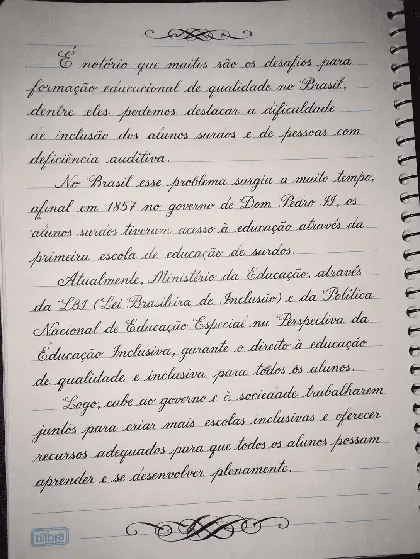 É notório que muitos são os desafios para
formação educacional de qualidade no Brasil,
dentre eles podemos destacar a dificuldade
de inclusão dos alunos surdos e de pessoas com
deficiência auditiva.
No Brasil esse problema surgiu a muito tempo,
afinal em 1857 no governo de Dom Pedro II, os
alunos surdos tiveram acesso à educação através da
primeira escola de educação de surdos.
Atualmente, Ministério da Educação, através
da LBI (Lei Brasileira de Inclusão) e da Política
Nacional de Educação Especial na Perspectiva da
Educação Inclusiva, garante o direito à educação
de qualidade e inclusiva para todos os alunos.
Logo, cabe ao governo e à sociedade trabalharem
juntos para criar mais escolas inclusivas e oferecer
recursos adequados para que todos os alunos possam
aprender e se desenvolver plenamente.
tilibra